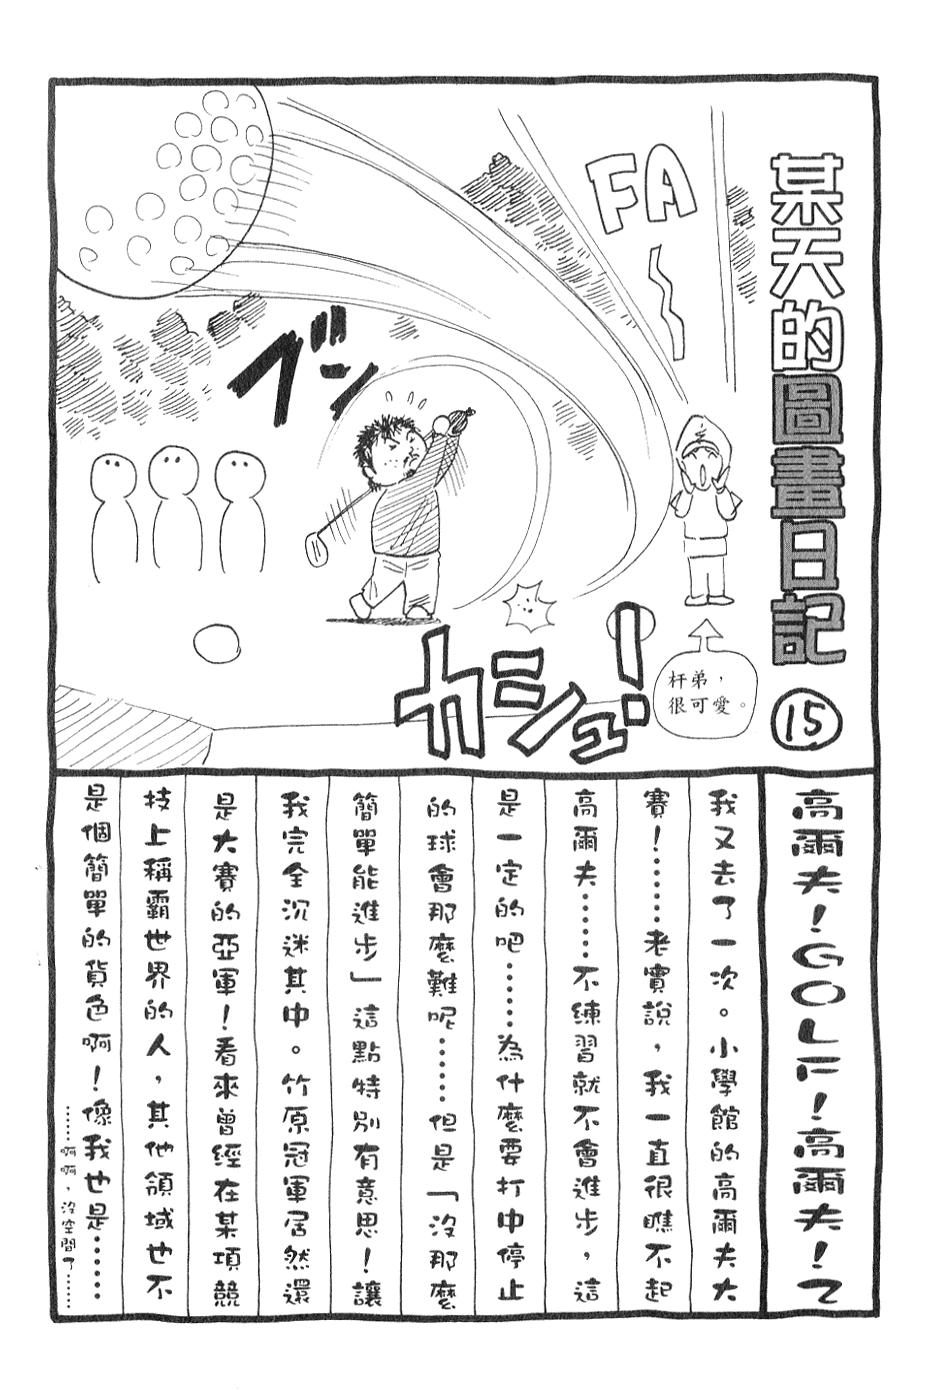 某天的圖畫日記
15
FA
ブン
カシュ!
杆弟，
很可愛。
高爾夫!GOLF!高爾夫!て
我又去了一次。小學館的高爾夫大
賽!………老實說，我一直很瞧不起
高爾夫………不練習就不會進步，這
是一定的吧………為什麼要打中停止
的球會那麼難呢………但是「沒那麼
簡單能進步」這點特別有意思!讓
我完全沉迷其中。竹原冠軍居然還
是大賽的亞軍!看來曾經在某項競
技上稱霸世界的人，其他領域也不
是個簡單的貨色啊!像我也是………
……啊啊，沒空間了……